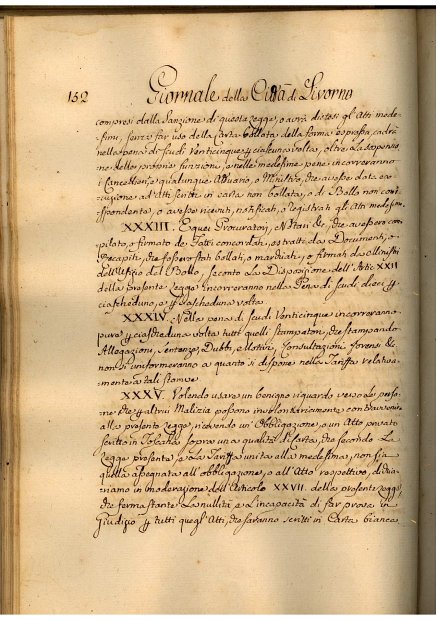 152 Giornale della Città di Livorno
compresi dalla Sanzione di questa Legge, o avrà distesi gl'Atti mede-
simi, senza far uso della Carta bollata della forma espressa, cadrà
nella pena di Scudi Venticinque p ciascuna volta, oltre la sospensio-
ne dalle proprie funzioni, e nelle medesime pene incorreranno
i Cancellieri, e qualunque Attuario, o Ministro, che avesse data ese-
cuzione ad Atti scritti in carta non bollata, o di Bollo non corri-
spondente, o avesse ricevuti, notificati, o registrati gl'Atti medesimi.
XXXIII. E quei Procuratori, Notari &c, che avessero com-
pilato, o firmato de' Fatti concordati, estratti da Documenti, o
Recapiti, che fossero stati bollati, o marchiati, o firmati da Ministri
dell'Ufizio del Bollo, secondo la Disposizione dell'Artic. XXII
della presente Legge incorreranno nella Pena di Scudi dieci p
ciascheduno, e p ciascheduna volta.
XXXIV. Nella pena di Scudi Venticinque incorreranno
pure p ciascheduna volta tutti quelli Stampatori, che stampando
Allegazioni, Sentenze, Dubbi, e Motivi, Consultazioni forensi &c.
non si uniformeranno a quanto si dispone nella Tariffa relativa-
mente a tali stampe.
XXXV. Volendo usare un benigno riguardo verso le perso-
ne, che p altrui Malizia possono involontariamente contravvenire
alla presente Legge, ricevendo un'Obbligazione, o un Atto privato
scritto in Toscana sopra una qualità di Carta, che secondo la
Legge presente, e la Tariffa unita alla medesima, non sia
quella assegnata all'obbligazione, o all'Atto respettivo, dichia-
riamo in moderazione dell'Articolo XXVII. della presente Legge,
che ferma stante la nullità e l'incapacità di far prova in
Giudizio p tutti quegl'Atti, che saranno scritti in Carta bianca